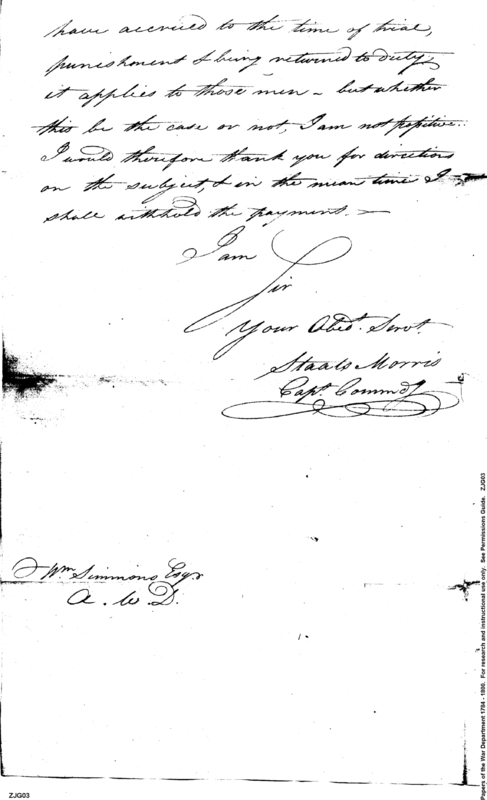 have accrued to the time of trial,
punishment & being returned to duty,
it applies to those men - but whether
this be the case or not, I am not positive.
I would therefore thank you for directions
on the subject, & in the mean time I
shall withhold the payment. —
I am
Sir
Your Obed.t Servt.
Staats Morris
Capt. Commdg
Wm Simmons Esqr
A. W D.
Papers of the War Department 1784 - 1800. For research and instructional use only. See Permissions Guide. ZJG03
ZJG03